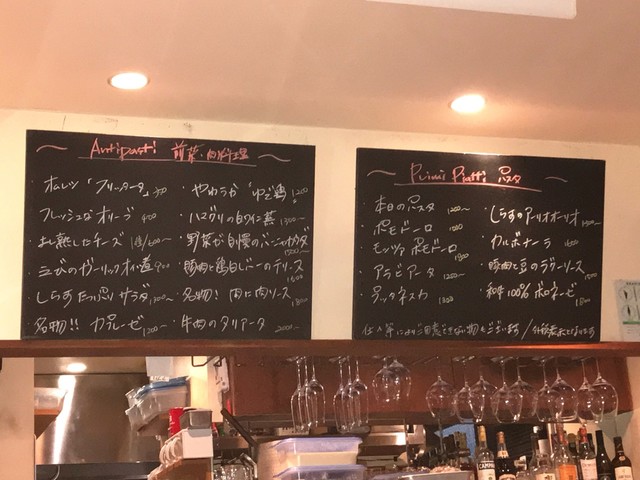 Antipasti 前菜・肉料理
オムレツ「フリッタータ」 750
フレッシュなオリーブ 400
熟したチーズ 1種/600〜
えびのガーリックオイル煮 900
しらすたっぷりサラダ
名物!! カプレーゼ 1200〜
・やわらか「ゆで鶏」 1200
・ハマグリの白ワイン蒸 1300〜
・野菜が自慢のバーニャカウダ 1500〜
・豚肉と鶏白レバーのテリーヌ 1600
・名物! 肉に肉ソース 1800
・牛肉のタリアータ 2000〜
Primi Piatti パスタ
・本日のパスタ 1200〜
・ポモドーロ 1000
・モッツァ ポモドーロ 1800
・アラビアータ 1200〜
・プッタネスカ 1300
・しらすのアーリオオーリオ
カルボナーラ 1600
・豚肉と豆のラグーソース 1500
・和牛100% ボロネーゼ 1800
仕入等によりご用意できない物もございます / 外税表示となります